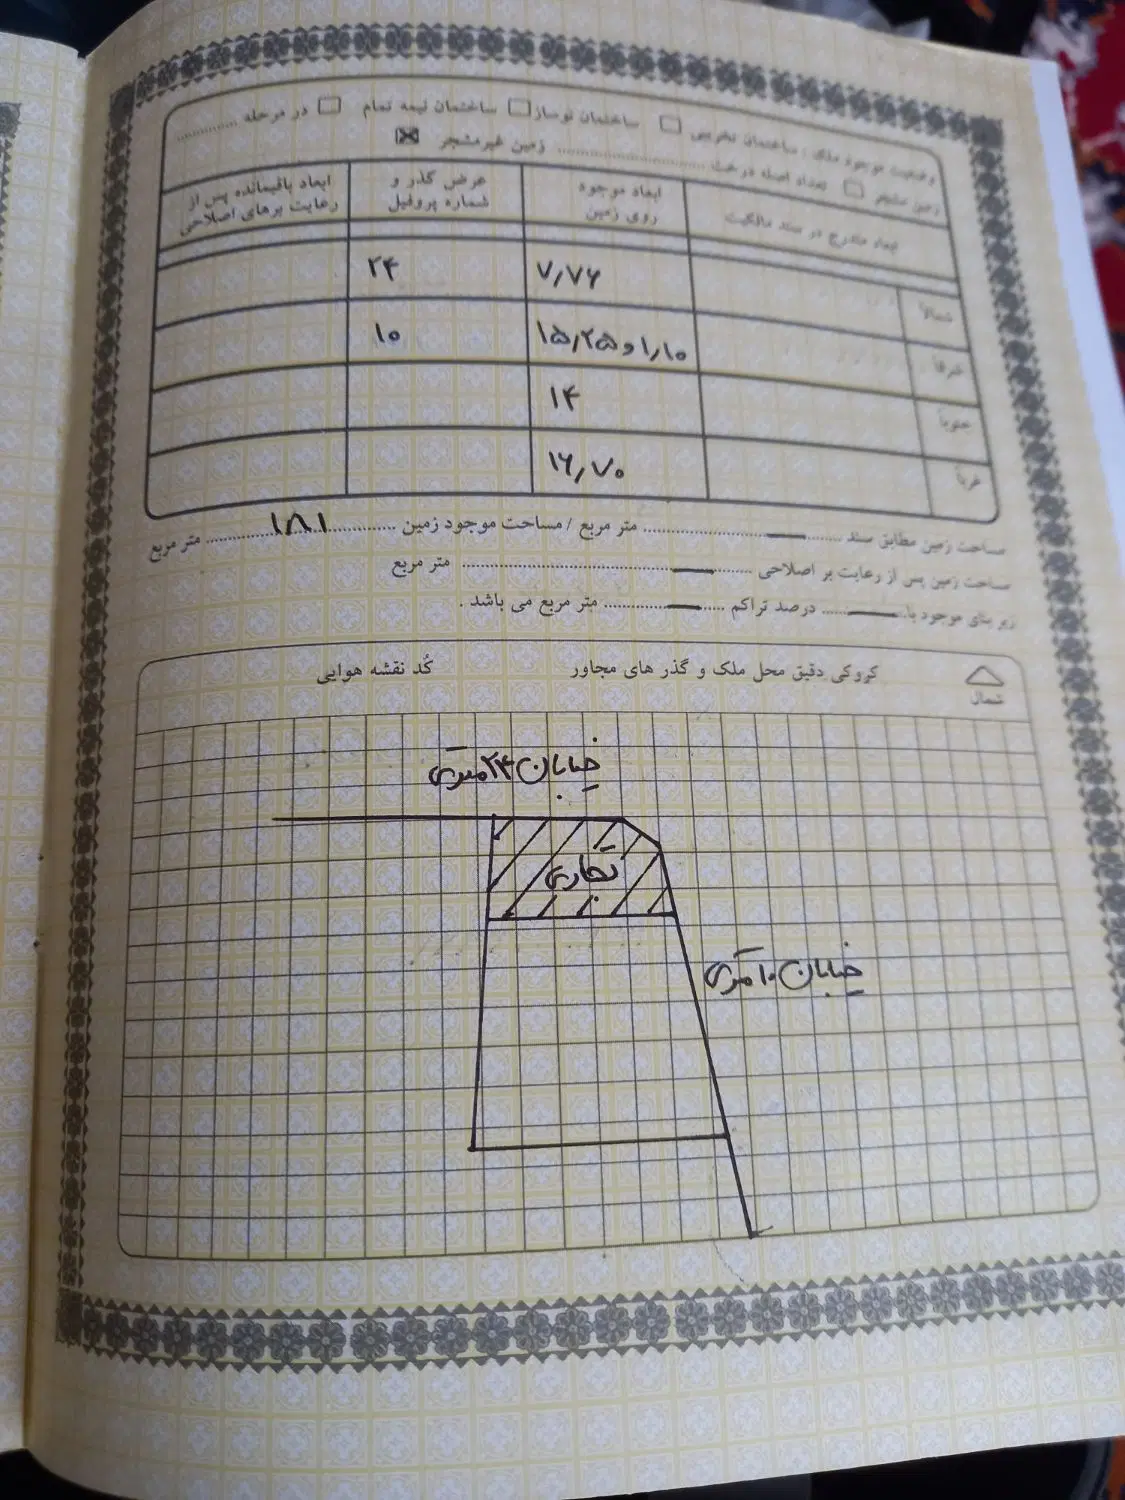 وضعیت موجود ملک : ساختمان تخریبی □ ساختمان نوساز □ ساختمان نیمه تمام □ در مرحله ..............
زمین مشجر □ تعداد اصله درخت .............................. زمین غیرمشجر ☒
ابعاد مندرج در سند مالکیت
ابعاد موجود روی زمین
عرض گذر و شماره پروفیل
ابعاد باقیمانده پس از رعایت برهای اصلاحی
شمالاً ۷٫۷۶ ۲۴
شرقاً ۱٫۱۰ و ۱۵٫۲۵ ۱۰
جنوباً ۱۴
غرباً ۱۶٫۷۰
مساحت زمین مطابق سند ......ــ...... متر مربع / مساحت موجود زمین ......۱۸۱...... متر مربع
مساحت زمین پس از رعایت بر اصلاحی ......ــ...... متر مربع
زیر بنای موجود با......ــ...... درصد تراکم ......ــ...... متر مربع می باشد .
شمال
کروکی دقیق محل ملک و گذر های مجاور
کُد نقشه هوایی
خیابان ۲۴ متری
تجاری
خیابان ۱۰ متری